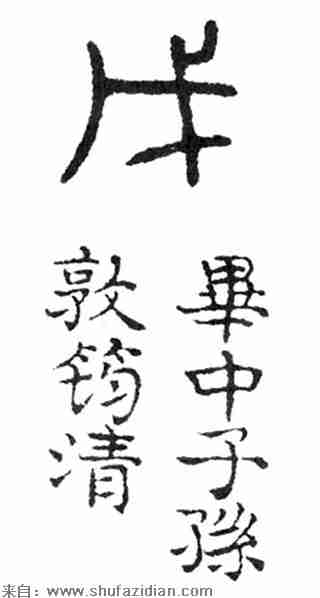 畢中子孫
敦筠清
来自：www.shufazidian.com